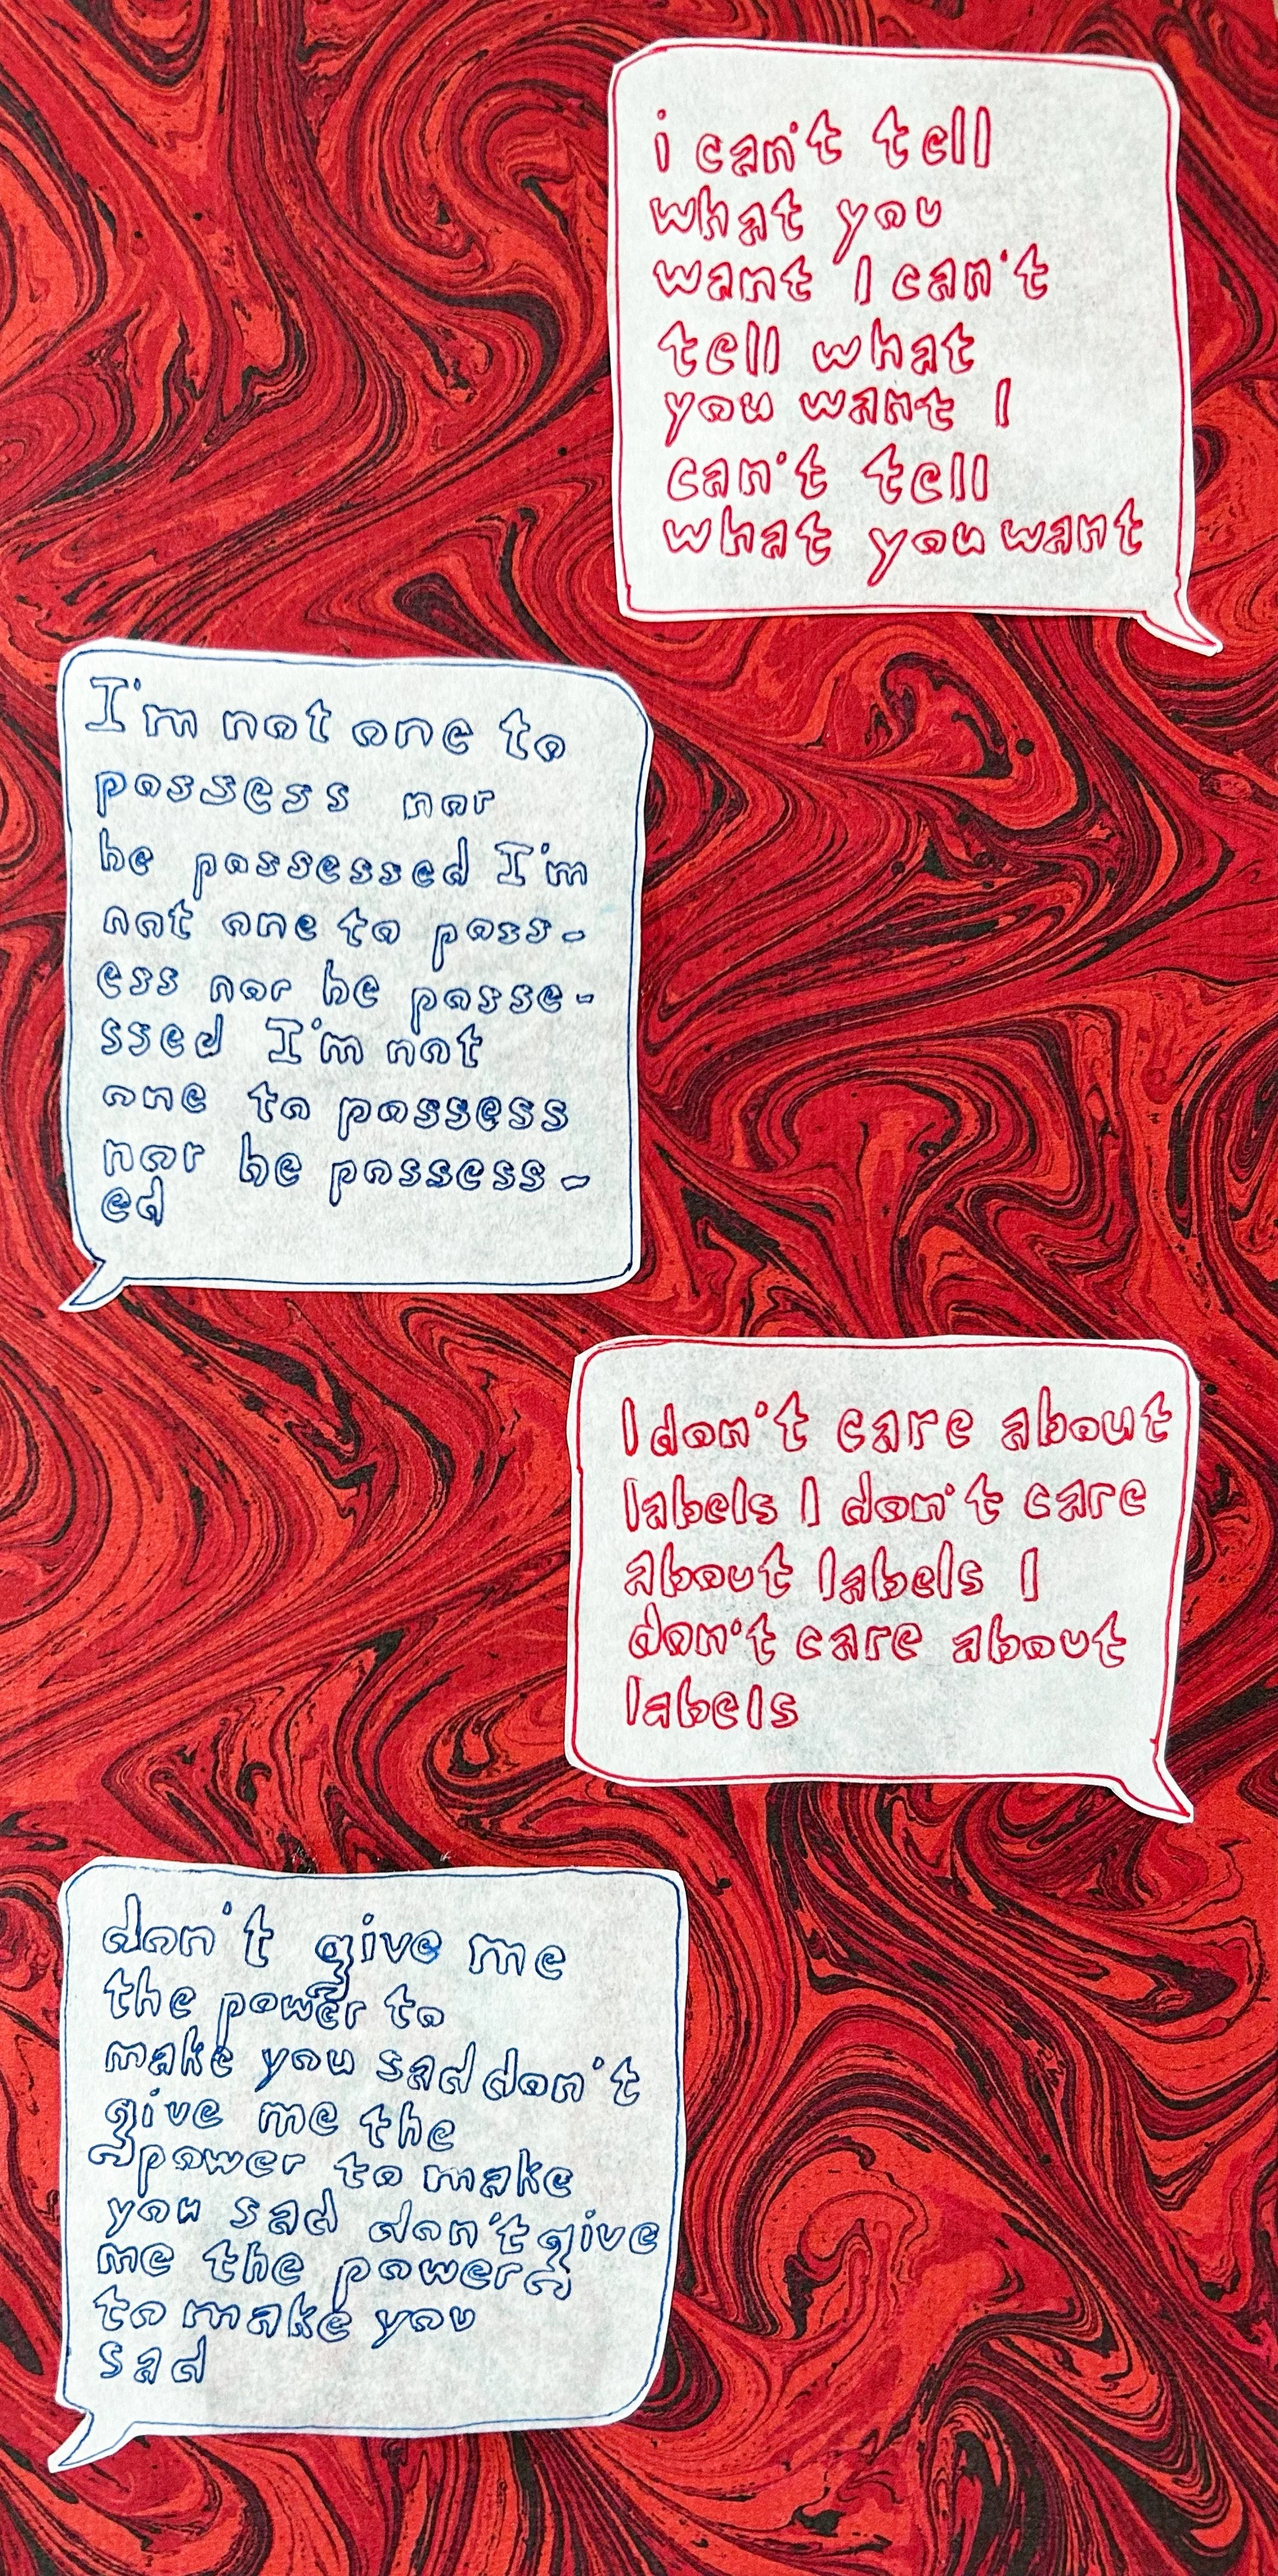 i can't tell
what you
want I can't
tell what
you want I
can't tell
what you want
I'm not one to
possess nor
be possessed I'm
not one to poss-
ess nor be posse-
ssed I'm not
one to possess
nor be possess-
ed
I don't care about
labels I don't care
about labels I
don't care about
labels
don't give me
the power to
make you sad don't
give me the
power to make
you sad don't give
me the power
to make you
sad